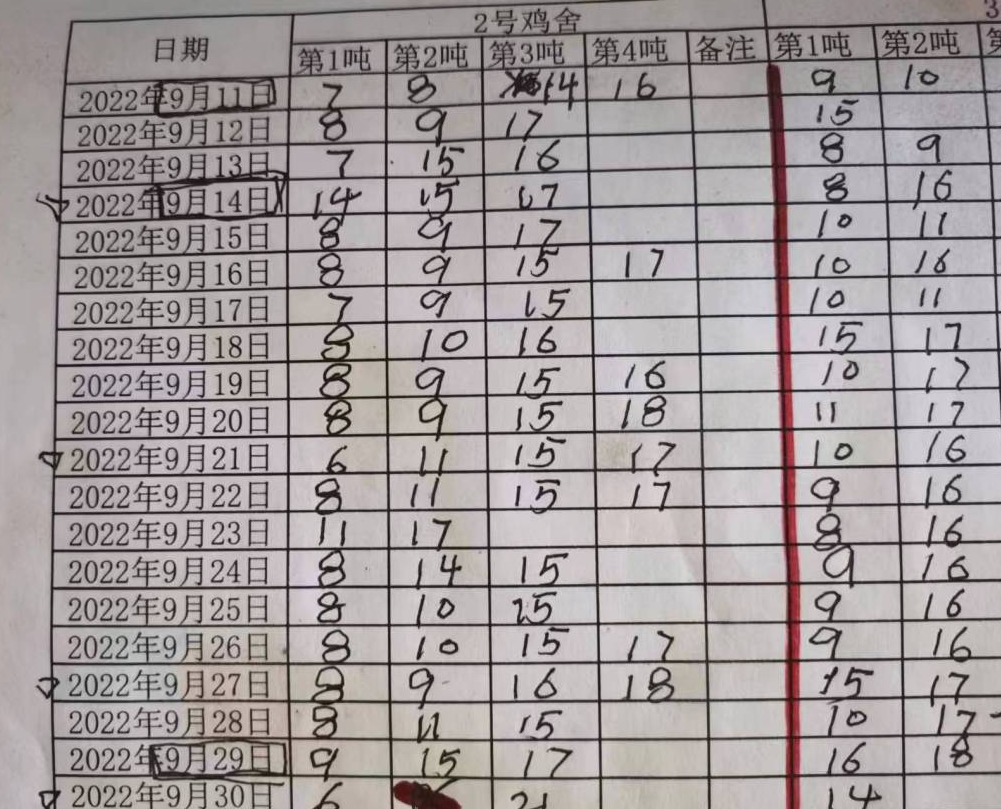 2号鸡舍 3
日期 第1吨 第2吨 第3吨 第4吨 备注 第1吨 第2吨
2022年9月11日 7 8 14 16 9 10
2022年9月12日 8 9 17 15
2022年9月13日 7 15 16 8 9
2022年9月14日 14 15 17 8 16
2022年9月15日 8 9 17 10 11
2022年9月16日 8 9 15 17 10 16
2022年9月17日 7 9 15 10 11
2022年9月18日 8 10 16 15 17
2022年9月19日 8 9 15 16 10 17
2022年9月20日 8 9 15 18 11 17
2022年9月21日 6 11 15 17 10 16
2022年9月22日 8 11 15 17 9 16
2022年9月23日 11 17 8 16
2022年9月24日 8 14 15 9 16
2022年9月25日 8 10 15 9 16
2022年9月26日 8 10 15 17 9 16
2022年9月27日 8 9 16 18 15 17
2022年9月28日 8 11 15 10 17
2022年9月29日 9 15 17 16 18
2022年9月30日 6 21 14